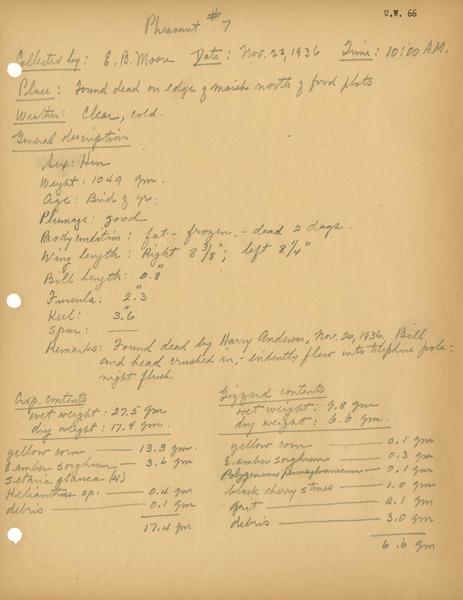 U.W. 66
Pheasant #7
Collected by: E. B. Moore Date: Nov. 23, 1936 Time: 10:00 A.M.
Place: Found dead on edge of marsh north of food plots
Weather: Clear, cold.
General description
Sex: Hen
Weight: 1049 gm.
Age: Bird of yr.
Plumage: good
Body condition: fat - frozen. - dead 2 days.
Wing length: Right 8 3/8"; left 8 1/4"
Bill length: 0.8"
Furcula: 2.3"
Keel: 3.6"
Spur: —
Remarks: Found dead by Harry Anderson, Nov. 20, 1936. Bill
and head crushed in, - evidently flew into telephone pole -
night flush.
Crop contents
wet weight: 27.5 gm
dry weight: 17.4 gm.
yellow corn — 13.3 gm.
E. amber sorghum — 3.6 gm.
Setaria glauca (4)
Helianthus sp. — 0.4 gm
debris — 0.1 gm
17.4 gm
Gizzard contents
wet weight: 9.8 gm
dry weight: 6.6 gm.
yellow corn — 0.1 gm
E. amber sorghum — 0.3 gm
Polygonum pennsylvanicum — 0.1 gm
black cherry stones — 1.0 gm
grit — 2.1 gm
debris — 3.0 gm
6.6 gm